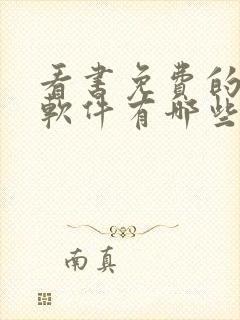 看书免费的
软件有哪些
南真